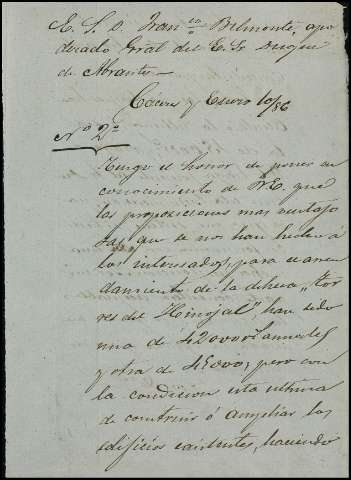 E. S. D. Franco Belmonte, apo
derado Gral del E. Sr Duque
de Abrantes
Cáceres y Enero 10/86
No 2o
Tengo el honor de poner en
conocimiento de V.E. que
las proposiciones mas ventajo
sas que se nos han hecho á
los interesados, para el arren
damiento de la dehesa "Tor
res del Hinojal", han sido
una de 42000 rs anuales
y otra de 45000; pero con
la condicion esta ultima
de construir ó ampliar los
edificios existentes, haciendo